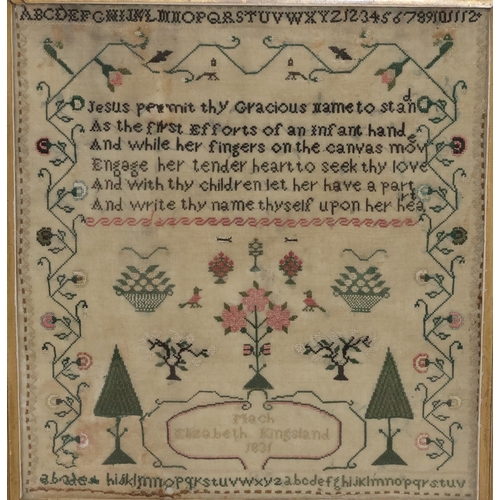 ABCDEFGHIJKLMNOPQRSTUVWXYZ123456789101112
Jesus permit thy Gracious name to stand
As the first Efforts of an infant hand
And while her fingers on the canvas move
Engage her tender heart to seek thy love
And with thy children let her have a part
And write thy name thyself upon her heart
Elizabeth Kingsland
1831
abcde hijklmnopqrstuvwxyzabcdefghijklmnopqrstuv